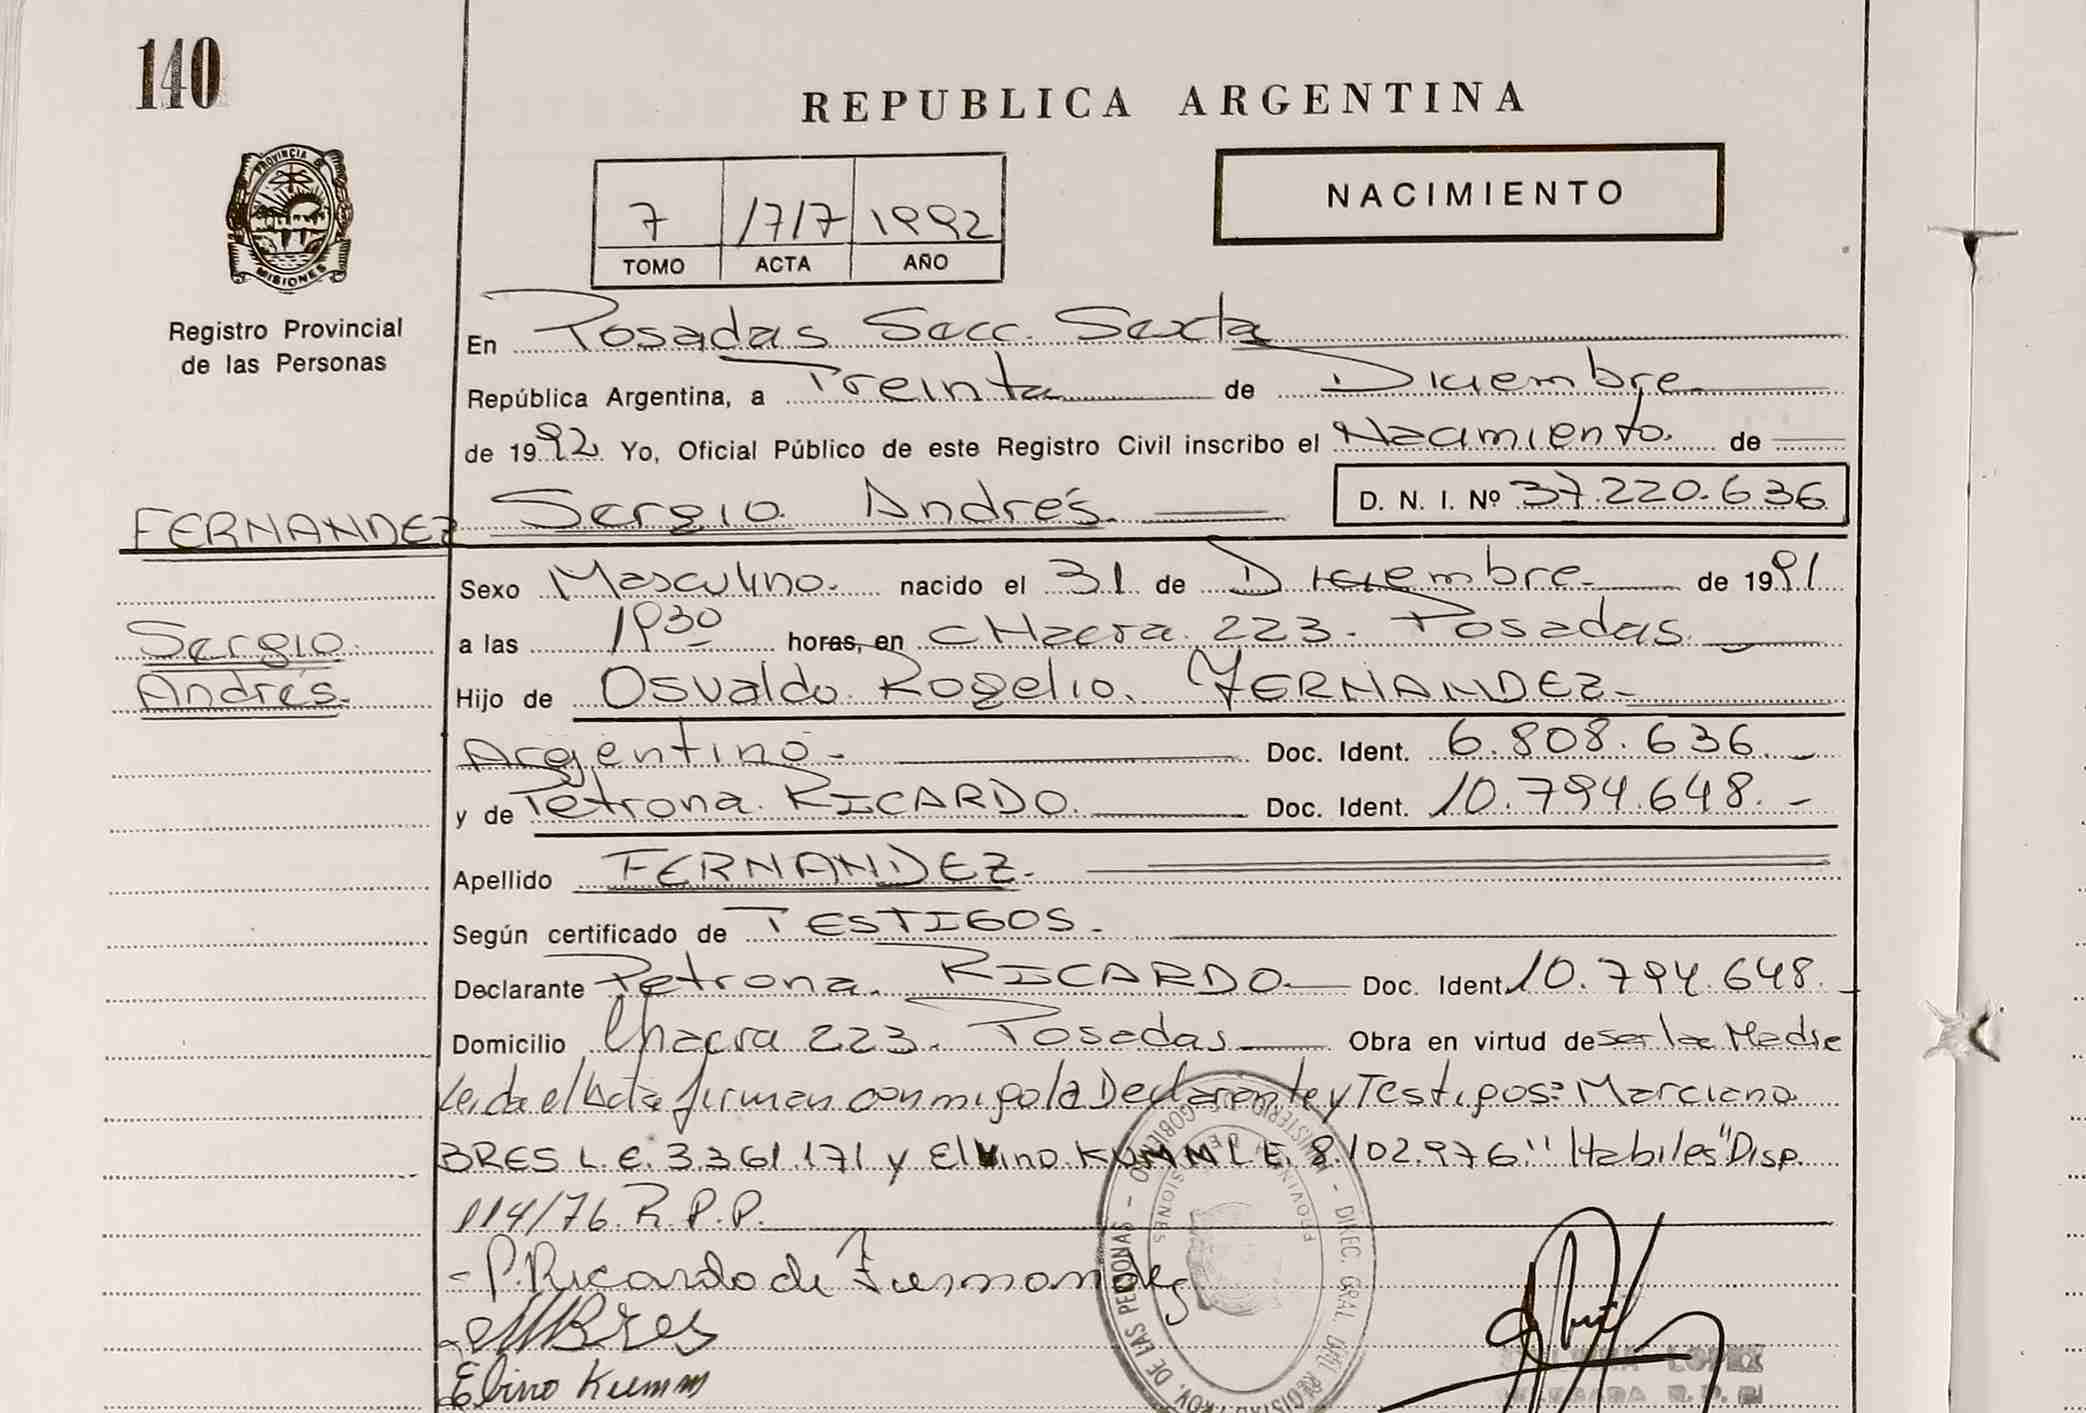 140
REPUBLICA ARGENTINA
PROVINCIA D
MISIONES
Registro Provincial
de las Personas
NACIMIENTO
7 1717 1992
TOMO ACTA AÑO
En Posadas Secc. Sexta
República Argentina, a Treinta de Diciembre
de 1992 Yo, Oficial Público de este Registro Civil inscribo el Nacimiento de
FERNANDEZ Sergio Andrés D. N. I. Nº 37.220.636
Sexo Masculino. nacido el 31 de Diciembre de 1991
Sergio
Andrés
a las 1930 horas, en cHacra 223. Posadas
Hijo de Osvaldo Rogelio FERNANDEZ
Argentino Doc. Ident. 6.808.636
y de Petrona RICARDO. Doc. Ident. 10.794.648.-
Apellido FERNANDEZ.
Según certificado de TESTIGOS.
Declarante Petrona RICARDO Doc. Ident. 10.794.648.
Domicilio Chacra 223. Posadas Obra en virtud de ser la Madre
Leída el Acta firman conmigo la Declarante y Testigos: Marciano
BRES L.E. 3361.171 y Elvino KUMM L.E. 8.102.976 "Habiles" Disp.
114/76. R.P.P.
- P. Ricardo de Fernandez
MBres
Elvino Kumm
LOPEZ